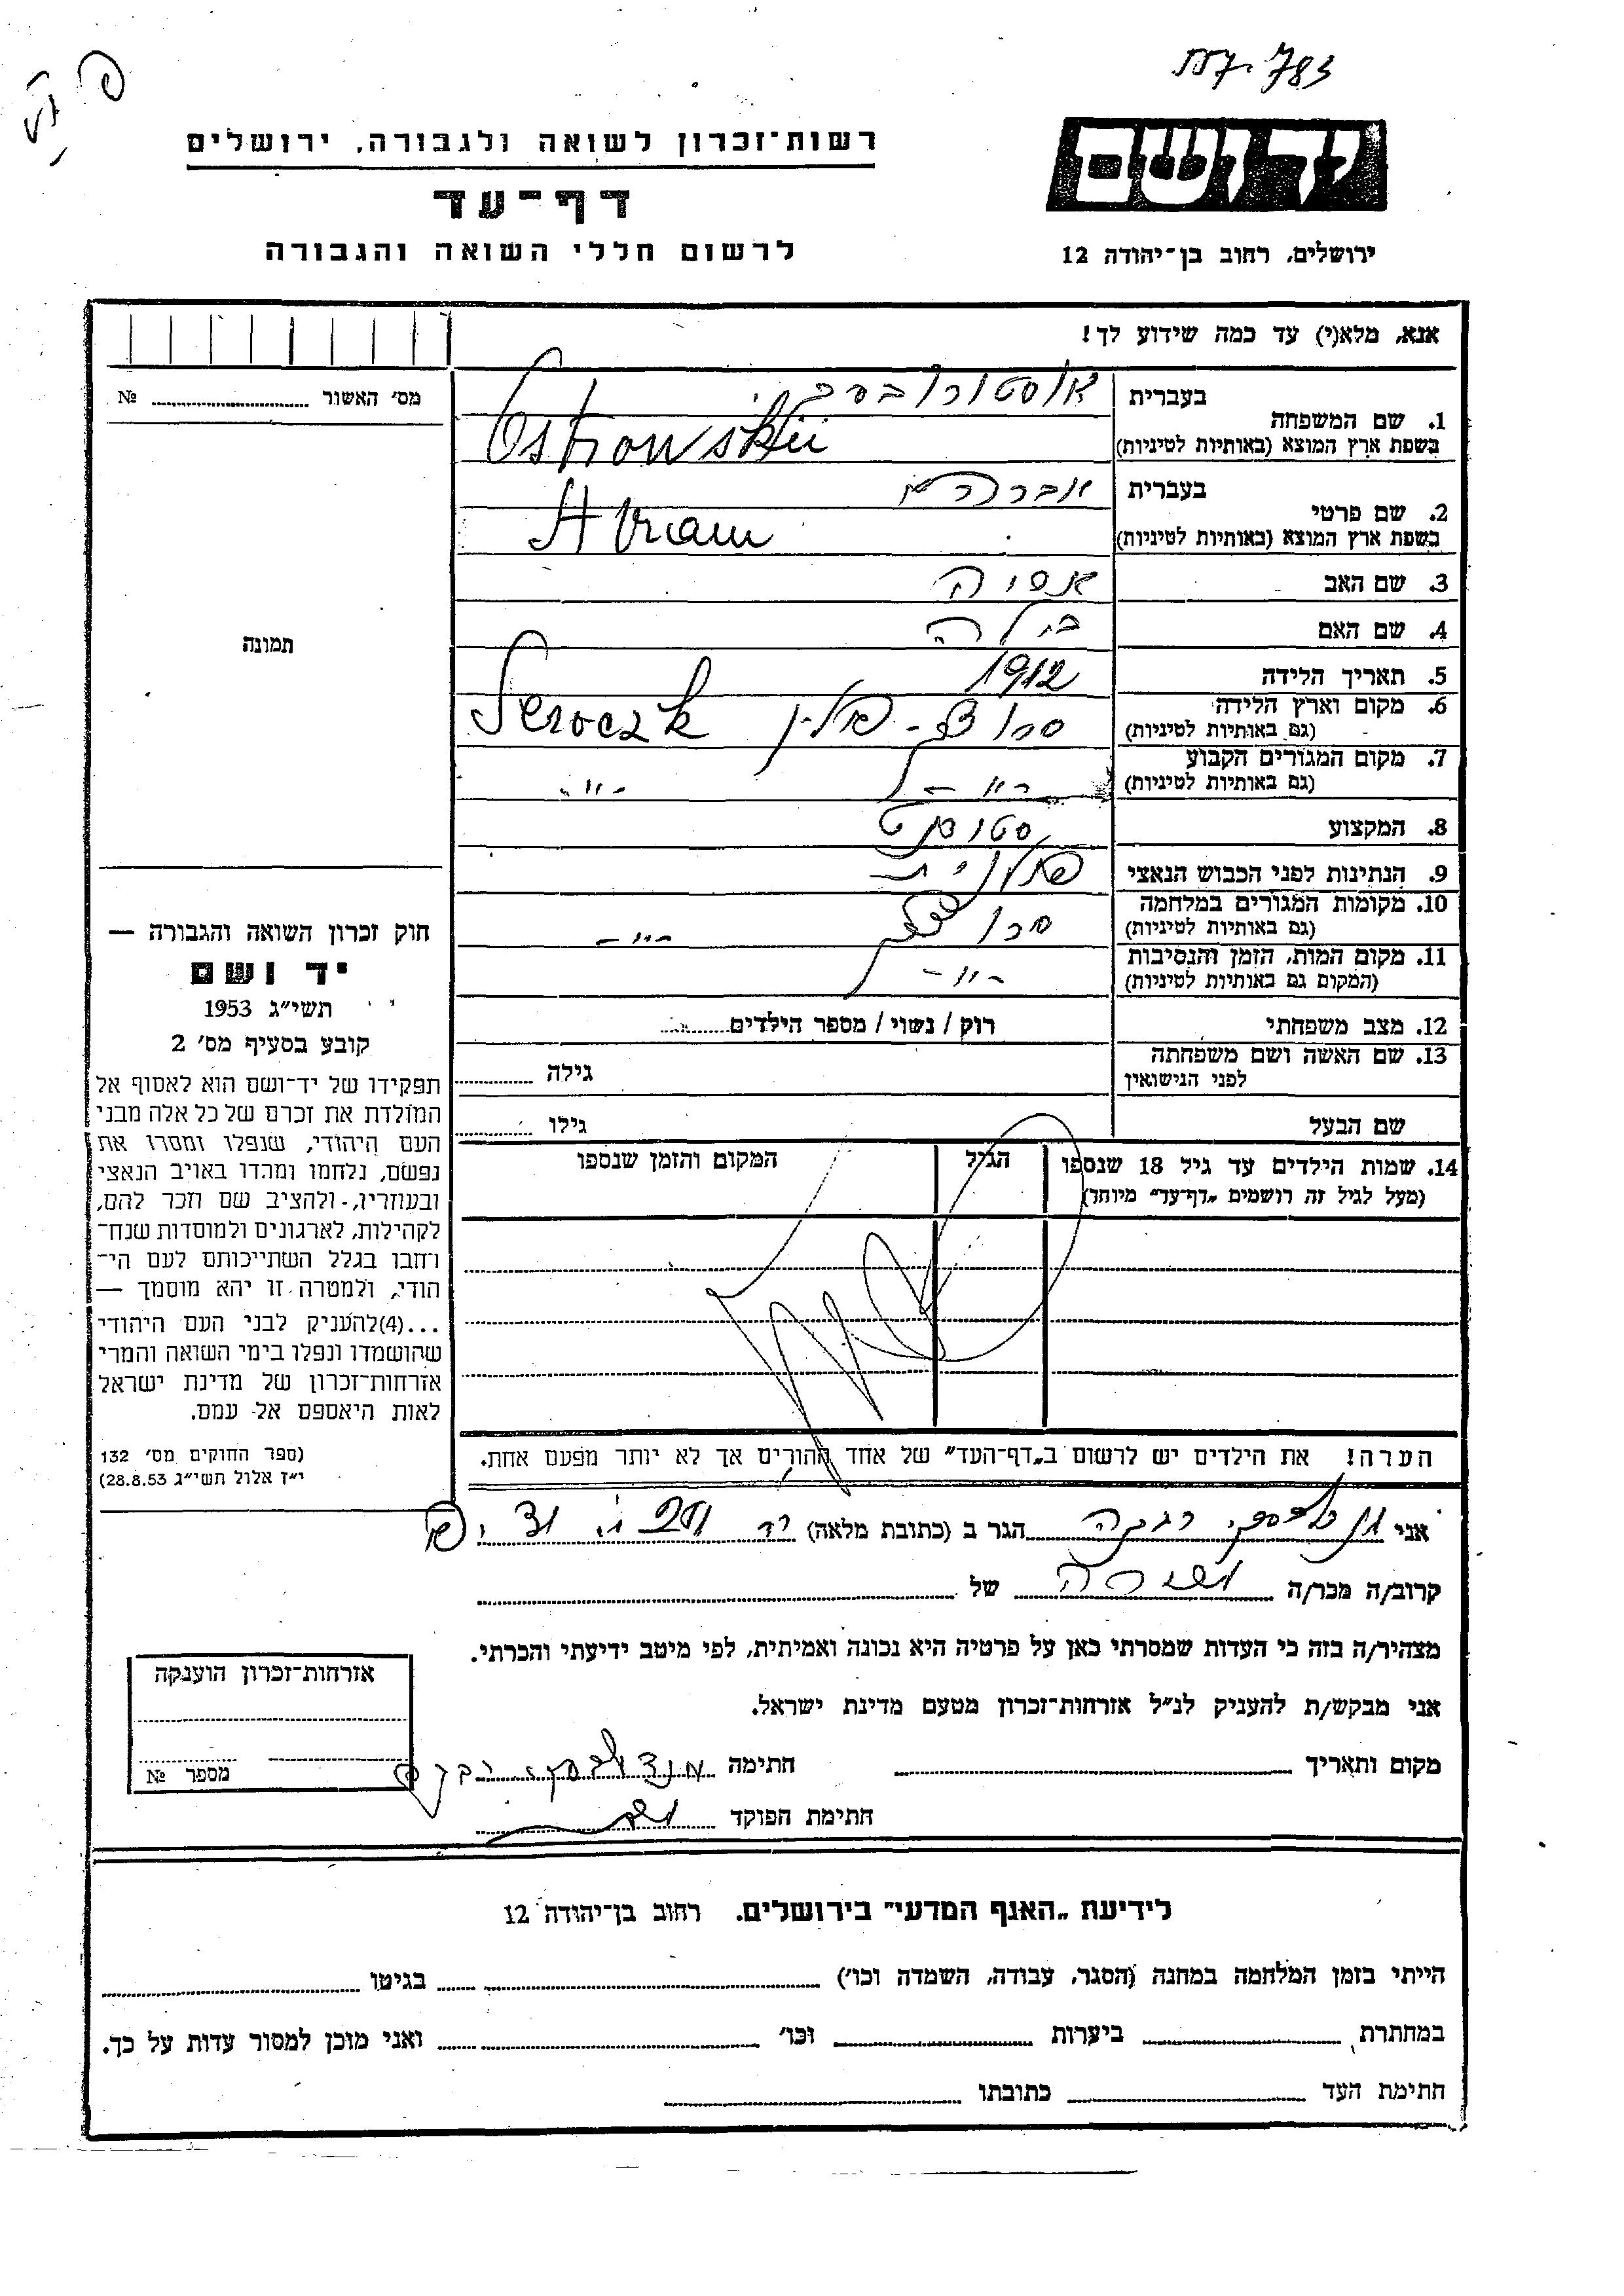 783
רשות־זכרון לשואה ולגבורה, ירושלים
יד ושם
דף־עד
לרשום חללי השואה והגבורה
ירושלים, רחוב בן־יהודה 12
אנא, מלא(י) עד כמה שידוע לך!
מס׳ האשור № 
1. שם המשפחה
בעברית
בשפת ארץ המוצא (באותיות לטיניות)
Ostrowskii
2. שם פרטי
בעברית אברהם
בשפת ארץ המוצא (באותיות לטיניות)
Avram
3. שם האב
4. שם האם
5. תאריך הלידה 1912
6. מקום וארץ הלידה
(גם באותיות לטיניות)
סרוצק - פולין Seroczk
7. מקום המגורים הקבוע
(גם באותיות לטיניות)
-"- -"-
8. המקצוע סטודנט
9. הנתינות לפני הכבוש הנאצי פולנית
10. מקומות המגורים במלחמה
(גם באותיות לטיניות)
סרוצק -"-
11. מקום המות, הזמן והנסיבות
(המקום גם באותיות לטיניות)
-"-
12. מצב משפחתי רוק / נשוי / מספר הילדים
13. שם האשה ושם משפחתה
לפני הנישואין
גילה
שם הבעל גילו
14. שמות הילדים עד גיל 18 שנספו
(מעל לגיל זה רושמים „דף־עד״ מיוחד)
הגיל
המקום והזמן שנספו
הערה! את הילדים יש לרשום ב„דף־העד״ של אחד ההורים אך לא יותר מפעם אחת.
תמונה
חוק זכרון השואה והגבורה —
יד ושם
תשי״ג 1953
קובע בסעיף מס׳ 2
תפקידו של יד־ושם הוא לאסוף אל
המולדת את זכרם של כל אלה מבני
העם היהודי, שנפלו ומסרו את
נפשם, נלחמו ומרדו באויב הנאצי
ובעוזריו, ולהציב שם וזכר להם,
לקהילות, לארגונים ולמוסדות שנח־
רחבו בגלל השתייכותם לעם הי־
הודי, ולמטרה זו יהא מוסמך —
...(4)להעניק לבני העם היהודי
שהושמדו ונפלו בימי השואה והמרי
אזרחות־זכרון של מדינת ישראל
לאות היאספם אל עמם.
(ספר החוקים מס׳ 132
י״ז אלול תשי״ג 28.8.53)
אני רבקה הגר ב (כתובת מלאה)
קרוב/ה מכר/ה של
מצהיר/ה בזה כי העדות שמסרתי כאן על פרטיה היא נכונה ואמיתית, לפי מיטב ידיעתי והכרתי.
אני מבקש/ת להעניק לנ״ל אזרחות־זכרון מטעם מדינת ישראל.
מקום ותאריך חתימה רבקה
חתימת הפוקד
אזרחות־זכרון הוענקה
מספר №
לידיעת „האגף המדעי״ בירושלים. רחוב בן־יהודה 12
הייתי בזמן המלחמה במחנה (הסגר, עבודה, השמדה וכו׳) בגיטו
במחתרת ביערות וכו׳ ואני מוכן למסור עדות על כך.
חתימת העד כתובתו